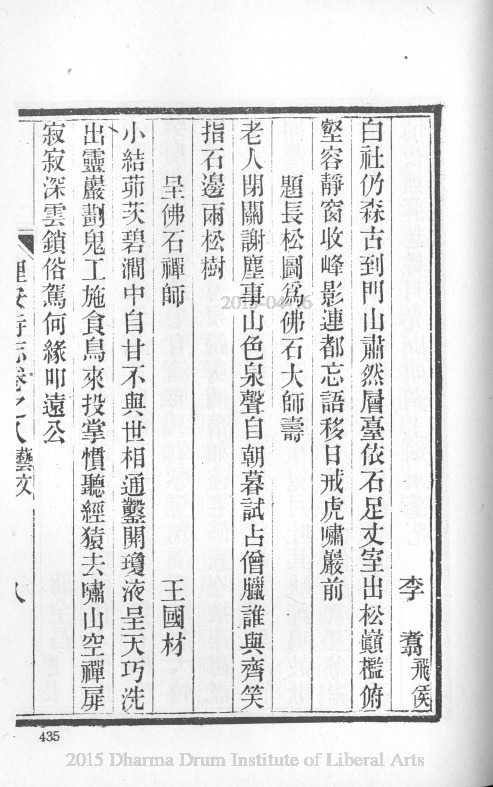 李翥飛侯
白社仍森古到門山肅然層臺依石足丈室出松巔檻俯
壑容靜窗收峰影連都忘語移日戒虎嘯巖前
題長松圖爲佛石大師壽
老人閉關謝塵事山色泉聲自朝暮試占僧臘誰與齊笑
指石邊兩松樹
呈佛石禪師 王國材
小結茆茨碧澗中自甘不與世相通鑿開瓊液呈天巧洗
出靈巖劃鬼工施食鳥來投掌慣聽經猿去嘯山空禪扉
寂寂深雲鎖俗駕何緣叩遠公
理安寺志卷之八藝文 八
435
2015 Dharma Drum Institute of Liberal Arts